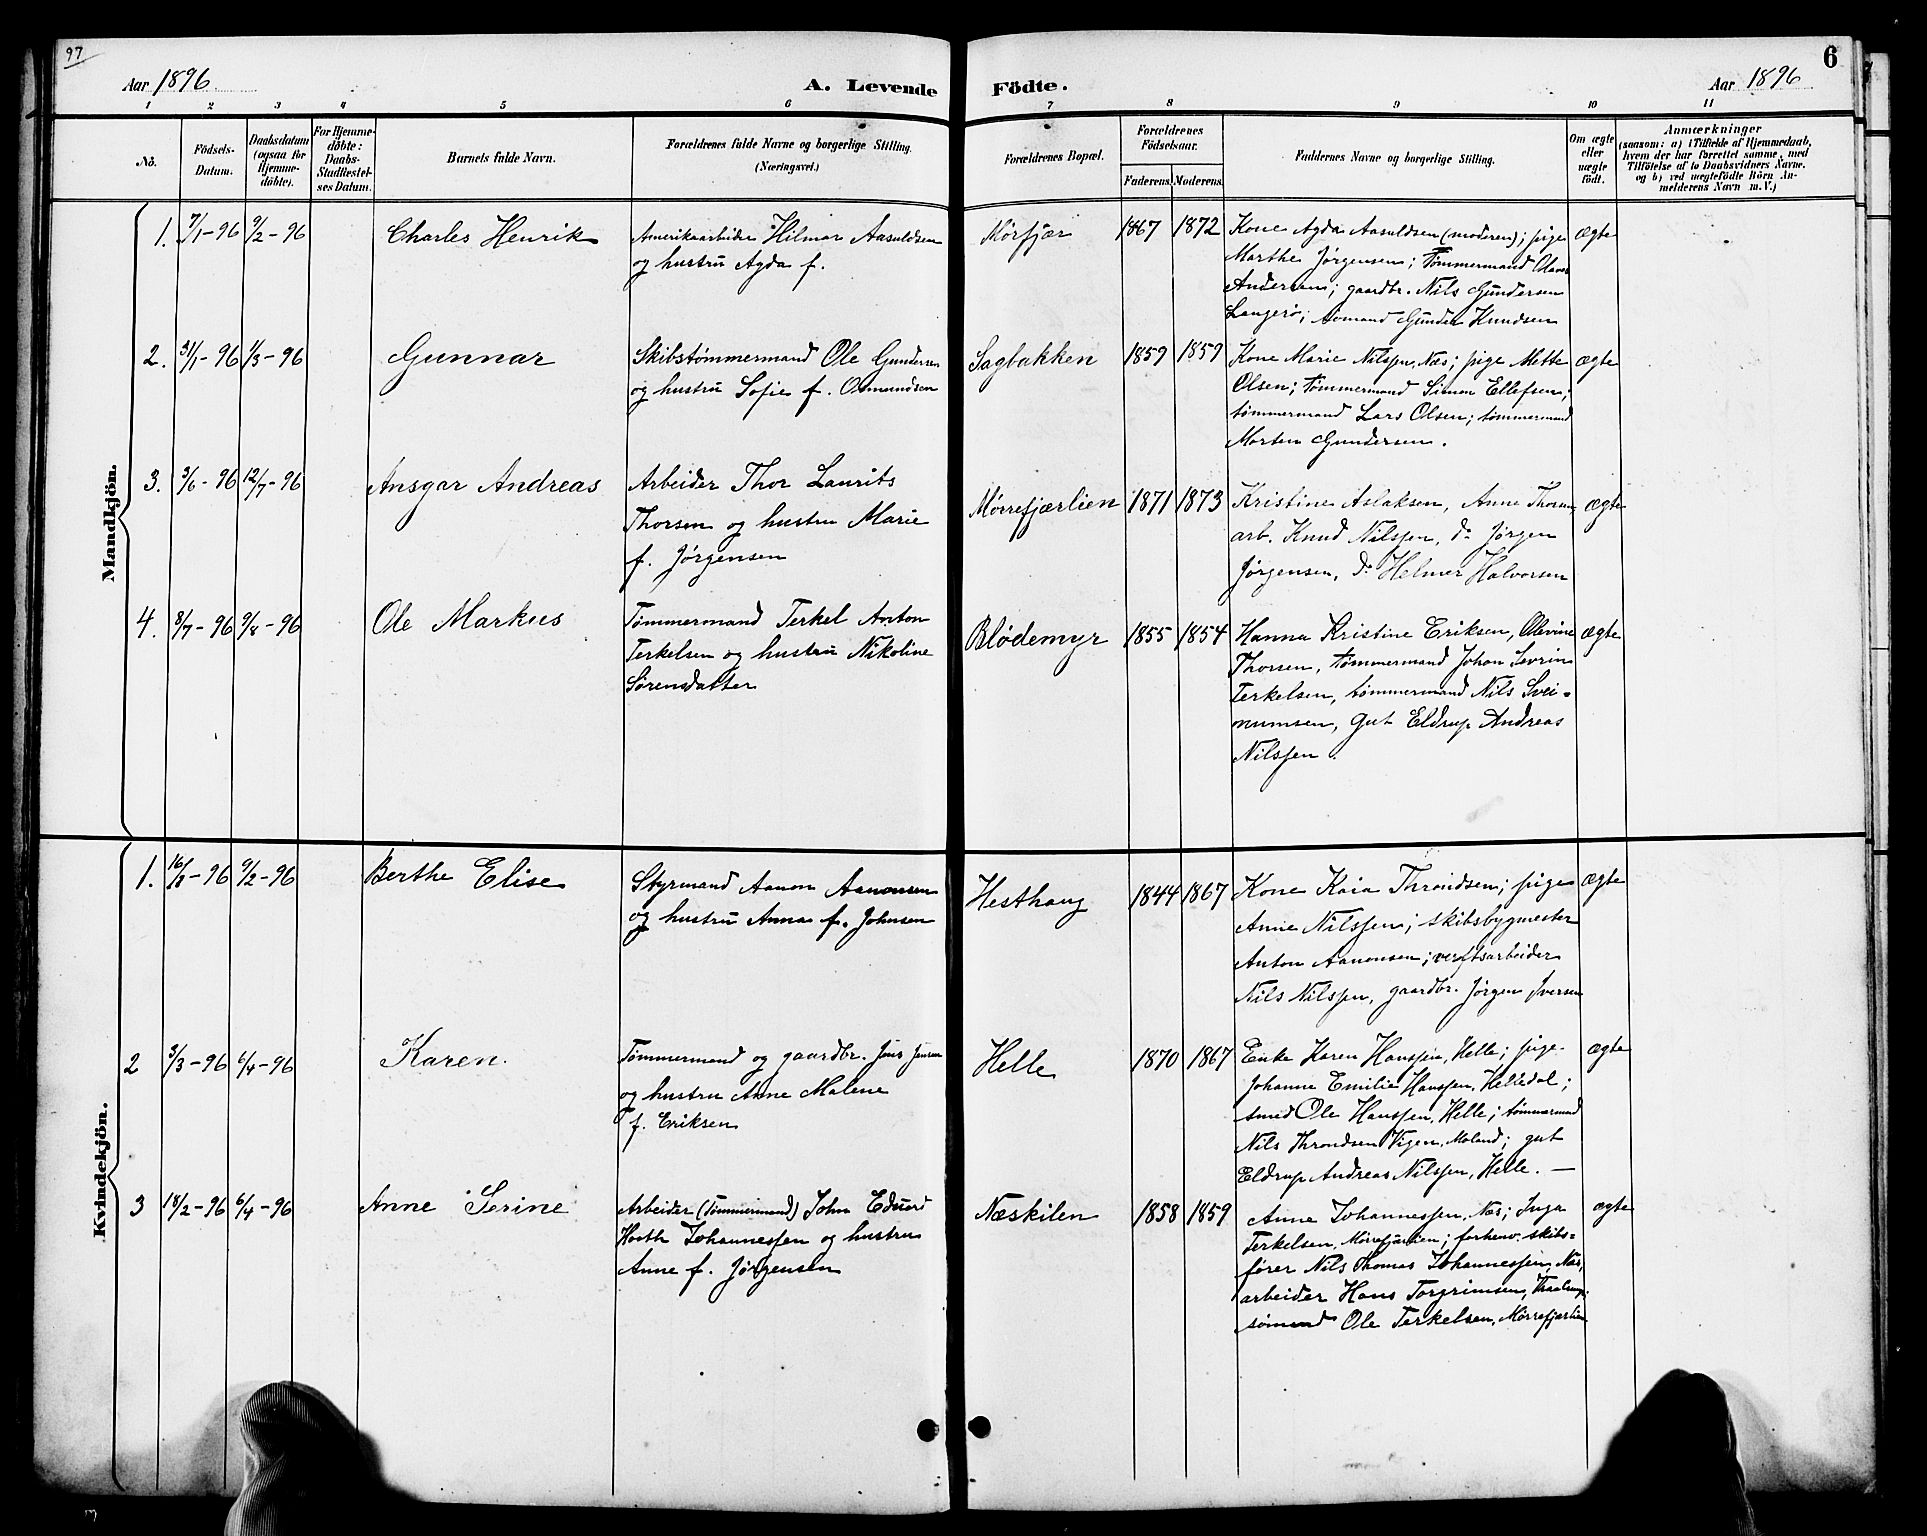 97
6
Aar 1896
A. Levende Födte.
Aar 1896
1 2 3 4 5 6 7 8 9 10 11
No.
Födsels-
Datum.
Daabsdatum
(ogsaa for
Hjemme-
döbte).
For Hjemme-
döbte:
Daabs-
Stadfæstel-
ses Datum.
Barnets fulde Navn.
Forældrenes fulde Navne og borgerlige Stilling.
(Næringsvei.)
Forældrenes Bopæl.
Forældrenes
Födselsaar.
Faderens. Moderens.
Faddernes Navne og borgerlige Stilling.
Om ægte
eller
uægte
födt.
Anmærkninger
(saasom: a) i Tilfælde af Hjemmedaab,
hvem der har forrettet samme, med
Tilföielse af to Daabsvidners Navne.
og b) ved uægtefödte Börn An-
melderens Navn m. V.)
Mandkjön.
1. 7/1-96 9/2-96 Charles Henrik
Amerikaarbeider Hilmar Aasuldsen
og hustru Agda f.
Mörfjær 1867 1872
Kone Agda Aasuldsen (moderen); pige
Marthe Jørgensen; Tømmermand Olaves
Andersen; gaardbr. Nils Gundersen
Langerö; sømand Gunder Knudsen
ægte
2. 31/1-96 1/3-96 Gunnar
Skibstømmermand Ole Gundersen
og hustru Sofie f. Osmundsen
Sagbakken 1859 1859
Kone Marie Nilssen, Næs; pige Mette
Olsen; tømmermand Simon Ellefsen;
tømmermand Lars Olsen; tømmermand
Morten Gundersen.
ægte
3. 3/6-96 12/7-96 Ansgar Andreas
Arbeider Thor Laurits
Thorsen og hustru Marie
f. Jørgensen
Mörrefjærlien 1871 1873
Kristine Aslaksen, Anne Thorsen,
arb. Knud Nilssen, do Jørgen
Jørgensen, do Helmer Halvorsen
ægte
4. 8/7-96 9/8-96 Ole Markus
Tømmermand Terkel Anton
Terkelsen og hustru Nikoline
Sørensdatter
Blödemyr 1855 1854
Hanna Kristine Eriksen, Olevine
Thorsen, tømmermand Johan Sevrin
Terkelsen, tømmermand Nils Svei-
numsen, gut Eldrup Andreas
Nilssen.
ægte
Kvindekjön.
1. 9/2-96 Berthe Elise
Styrmand Aanon Aanonsen
og hustru Anna f. Johnsen
Hesthaug 1844 1867
Kone Kaia Throndsen; pige
Anne Nilssen; skibsbygmester
Anton Aanonsen; verftsarbeider
Nils Nilssen, gaardbr. Jørgen Iversen
ægte
2 3/3-96 6/4-96 Karen.
Tømmermand og gaardbr. Jens Jensen
og hustru Anne Malene
f. Eriksen
Helle 1870 1867
Enke Karen Hanssen, Helle; pige
Johanne Emilie Hanssen, Helledal;
smed Ole Hanssen, Helle; tømmermand
Nils Throndsen Vigen, Moland; gut
Eldrup Andreas Nilssen, Helle. —
ægte
3 18/2-96 6/4-96 Anne Serine
Arbeider (Tømmermand) John Edvard
Johannessen og hustru
Anne f. Jørgensen
Næskilen 1858 1859
Anne Johannessen, Næs; Inga
Terkelsen, Mörrefjærlien; forhenv. skibs-
fører Nils Thomas Johannessen, Næs,
arbeider Hans Torgrimsen,
sømand Ole Terkelsen, Mörrefjærlien
ægte